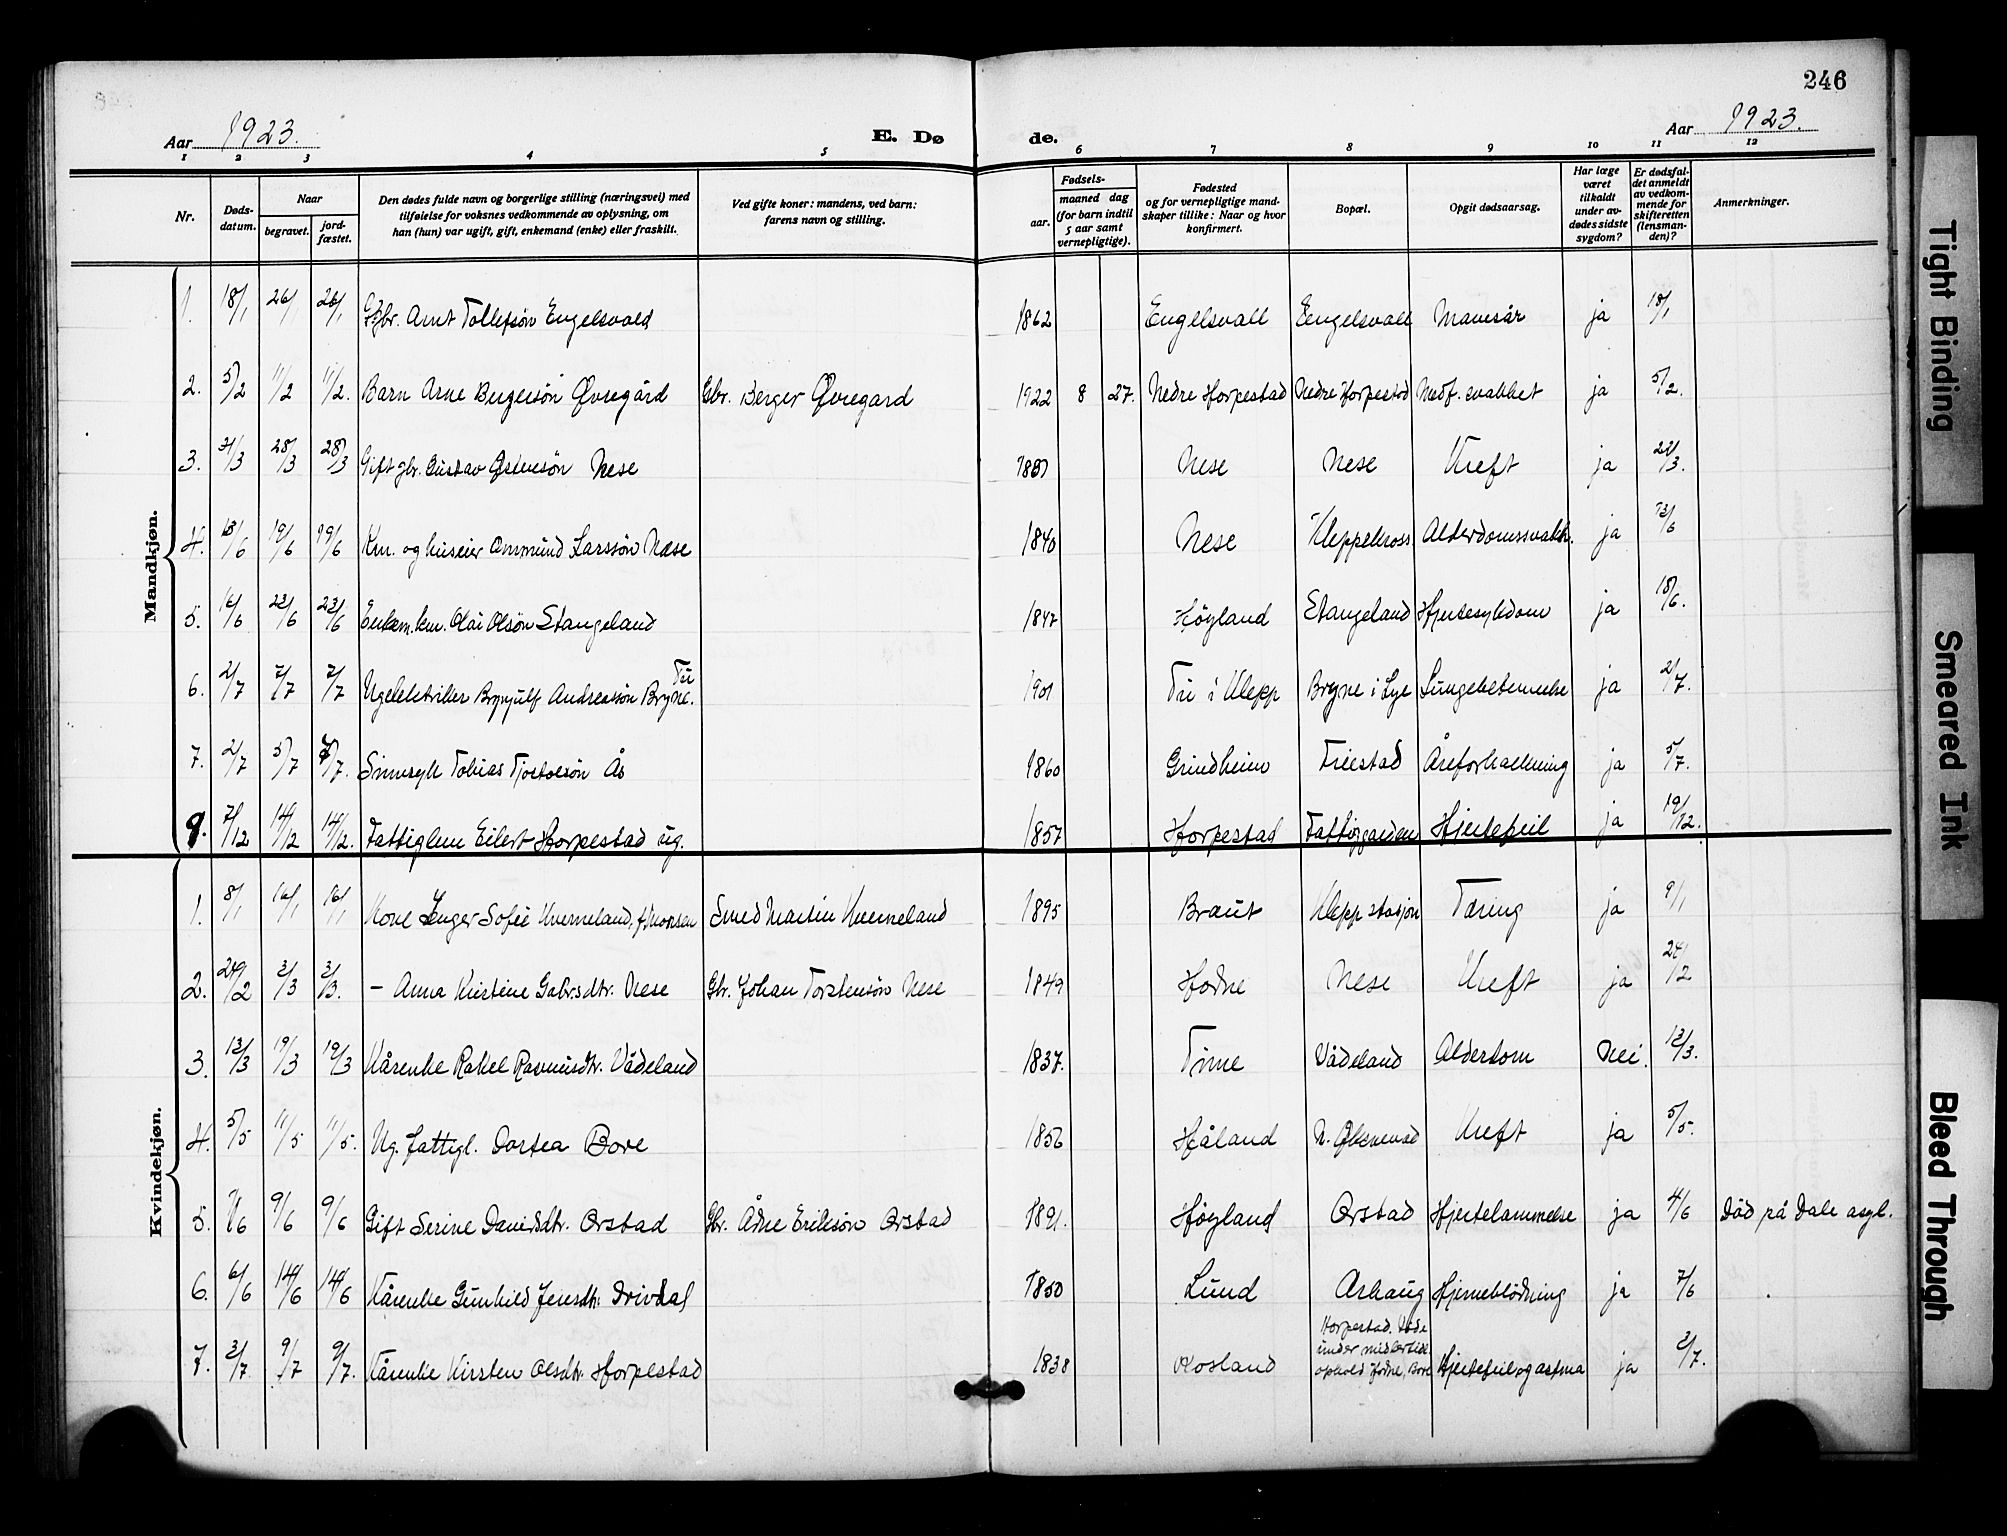 246
Aar 1923.
E. Døde.
Aar 1923.
1 2 3 4 5 6 7 8 9 10 11 12
Nr.
Døds-
datum.
Naar
begravet.
jord-
fæstet.
Den dødes fulde navn og borgerlige stilling (næringsvei) med
tilføielse for voksnes vedkommende av oplysning, om
han (hun) var ugift, gift, enkemand (enke) eller fraskilt.
Ved gifte koner: mandens, ved barn:
farens navn og stilling.
Fødsels-
aar.
maaned dag
(for barn indtil
5 aar samt
vernepligtige).
Fødested
og for vernepligtige mand-
skaper tillike: Naar og hvor
konfirmert.
Bopæl.
Opgit dødsaarsag.
Har læge
været
tilkaldt
under av-
dødes sidste
sygdom?
Er dødsfal-
det anmeldt
av vedkom-
mende for
skifteretten
(lensman-
den)?
Anmerkninger.
Mandkjøn.
1. 18/1 26/1 26/1 Gbr. Arnt Tollefsøn Engelsvold 1862 Engelsvall Engelsvall Mavesår ja 18/1
2. 5/2 11/2 11/2. Barn Arne Bergersøn Øvregård Gbr. Berger Øvregard 1922 8 27. Nedre Horpestad Nedre Horpestad Medf. svakhet ja 5/2.
3. 21/3 28/3 28/3 Gift gbr. Gustav Østensøn Nese Nese Nese Kreft ja 22/3.
4. 13/6 19/6 19/6 Km. og huseier Ommund Larssøn Nese 1840 Nese Kleppekross Alderdomssvakh. ja 13/6
5. 16/6 23/6 23/6 Enkem. km. Olai Olsøn Stangeland 1847 Høyland Stangeland Hjertesykdom ja 18/6.
6. 2/7 7/7 7/7 Ug elektriker Brynjulf Andreassøn Bryne. Tu 1901 Tu i Klepp Bryne i Lye Lungebetennelse ja 2/7.
7. 2/7 5/7 7/7. Sinnsyk Tobias Tjostolsøn Ås 1860 Grindheim Friestad Åreforkalkning ja 5/7.
9. 7/12 14/12 14/12. Fattiglem Eilert Horpestad ug. 1857 Horpestad Fattiggarden Hjertefeil ja 19/12.
Kvindekjøn.
1. 8/1 16/1 16/1 Kone Inger Sofie Kverneland, f. Smed Martin Kverneland 1895 Braut Klepp stasjon Tæring ja 9/1
2. 24/2 3/3 3/3. – Anna Kristine Gabr.sdtr. Nese Gbr. Johan Torstensøn Nese 1849 Hodne Nese Kreft ja 24/2
3. 13/3 19/3 19/3 Kårenke Rakel Rasmusdtr. Vådeland 1837. Time Vådeland Alderdom Nei. 13/3.
4. 5/5 11/5 11/5. Ug. fattigl. Dortea Bore 1856 Håland N. Øksnevad Kreft ja 5/5.
5. 1/6 9/6 9/6 Gift Serine Davidsdtr. Orstad Gbr. Ådne Eriksøn Orstad 1891. Høyland Orstad Hjertelammelse ja 4/6 Død på Dale asyl.
6. 6/6 14/6 14/6 Kårenke Gunhild Jensdtr. Drivdal 1850 Lund Ashaug Hjerneblødning ja 7/6
7. 3/7 9/7 9/7. Kårenke Kirsten Olsdtr. Horpestad 1838 Rosland Horpestad. Døde
under midlertidl.
ophold Hodne, Bore Hjertefeil og astma ja 3/7.
Tight Binding
Smeared Ink
Bleed Through